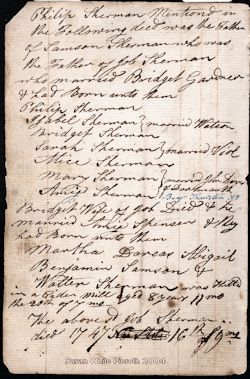 Philip Sherman Mentiond in
the Following died was the Father
of Samson Sherman who was
the Father of Job Sherman
who married Bridget Gardner
& had Born unto them
Philip Sherman
Isabel Sherman } married Watson
Bridget Sherman
Sarah Sherman } married
Alice Sherman
Mary Sherman } married John
Amey Sherman of Dartmouth
Bridget Wife of Job Died & he
married Amie Spencer & they
had Born unto them
Martha Dorcas Abigail
Benjamin Samson &
Walter Sherman was killed
in a Cyder Mill Aged 8 years 11 mo
The above Job Sherman
died 1747 16th of 9 mo
Susan White Pieroth 2004